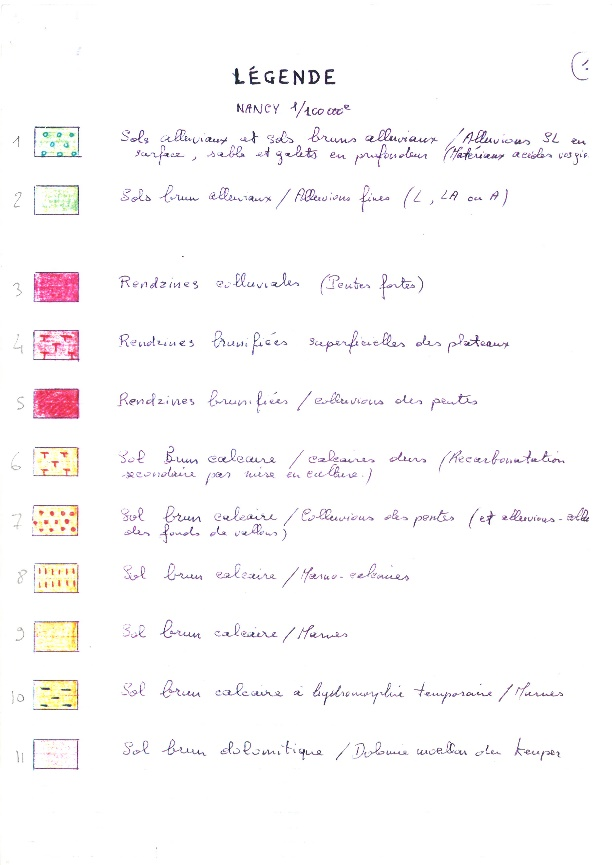 1
LÉGENDE
NANCY 1/100 000e
1 Sols alluviaux et sols bruns alluviaux / Alluvions SL en
surface, sable et galets en profondeur (Matériaux acides vosgi
2 Sols brun alluviaux / Alluvions fines (L, LA ou A)
3 Rendzines colluviales (Pentes fortes)
4 Rendzines brunifiées superficielles des plateaux
5 Rendzines brunifiées / colluvions des pentes
6 Sol Brun calcaire / calcaires durs (Recarbonatation
secondaire par mise en culture.)
7 Sol brun calcaire / Colluvions des pentes (et alluvions-collu
des fonds de vallons)
8 Sol brun calcaire / Marno-calcaires
9 Sol brun calcaire / Marnes
10 Sol brun calcaire à hydromorphie temporaire / Marnes
11 Sol brun dolomitique / Dolomie moellon du keuper